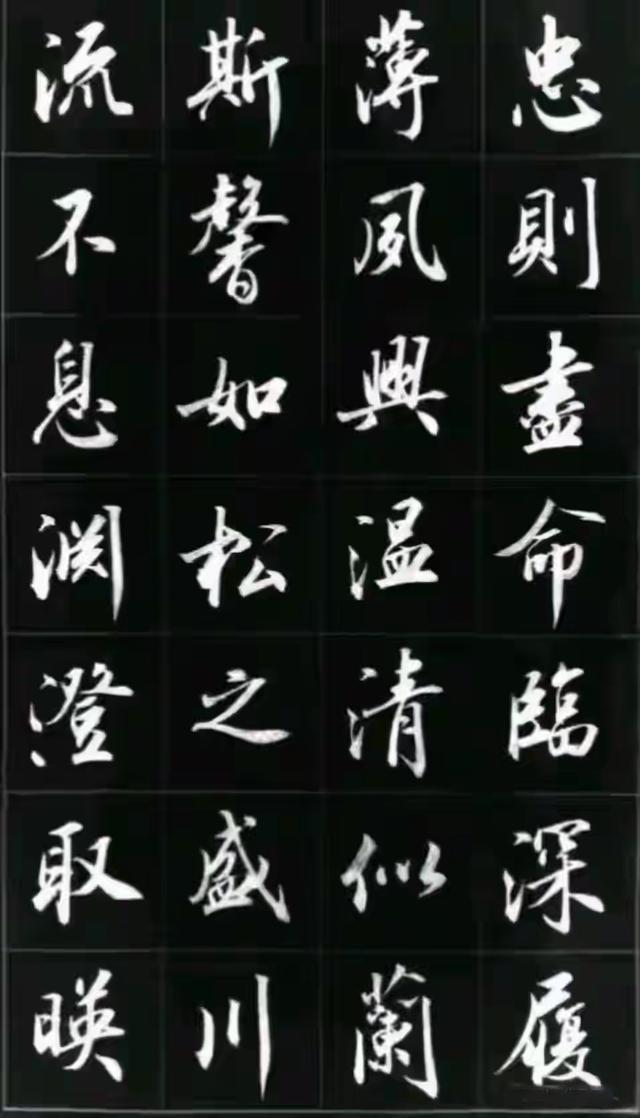 忠則盡命臨深履
薄夙興温清似蘭
斯馨如松之盛川
流不息渊澄取暎